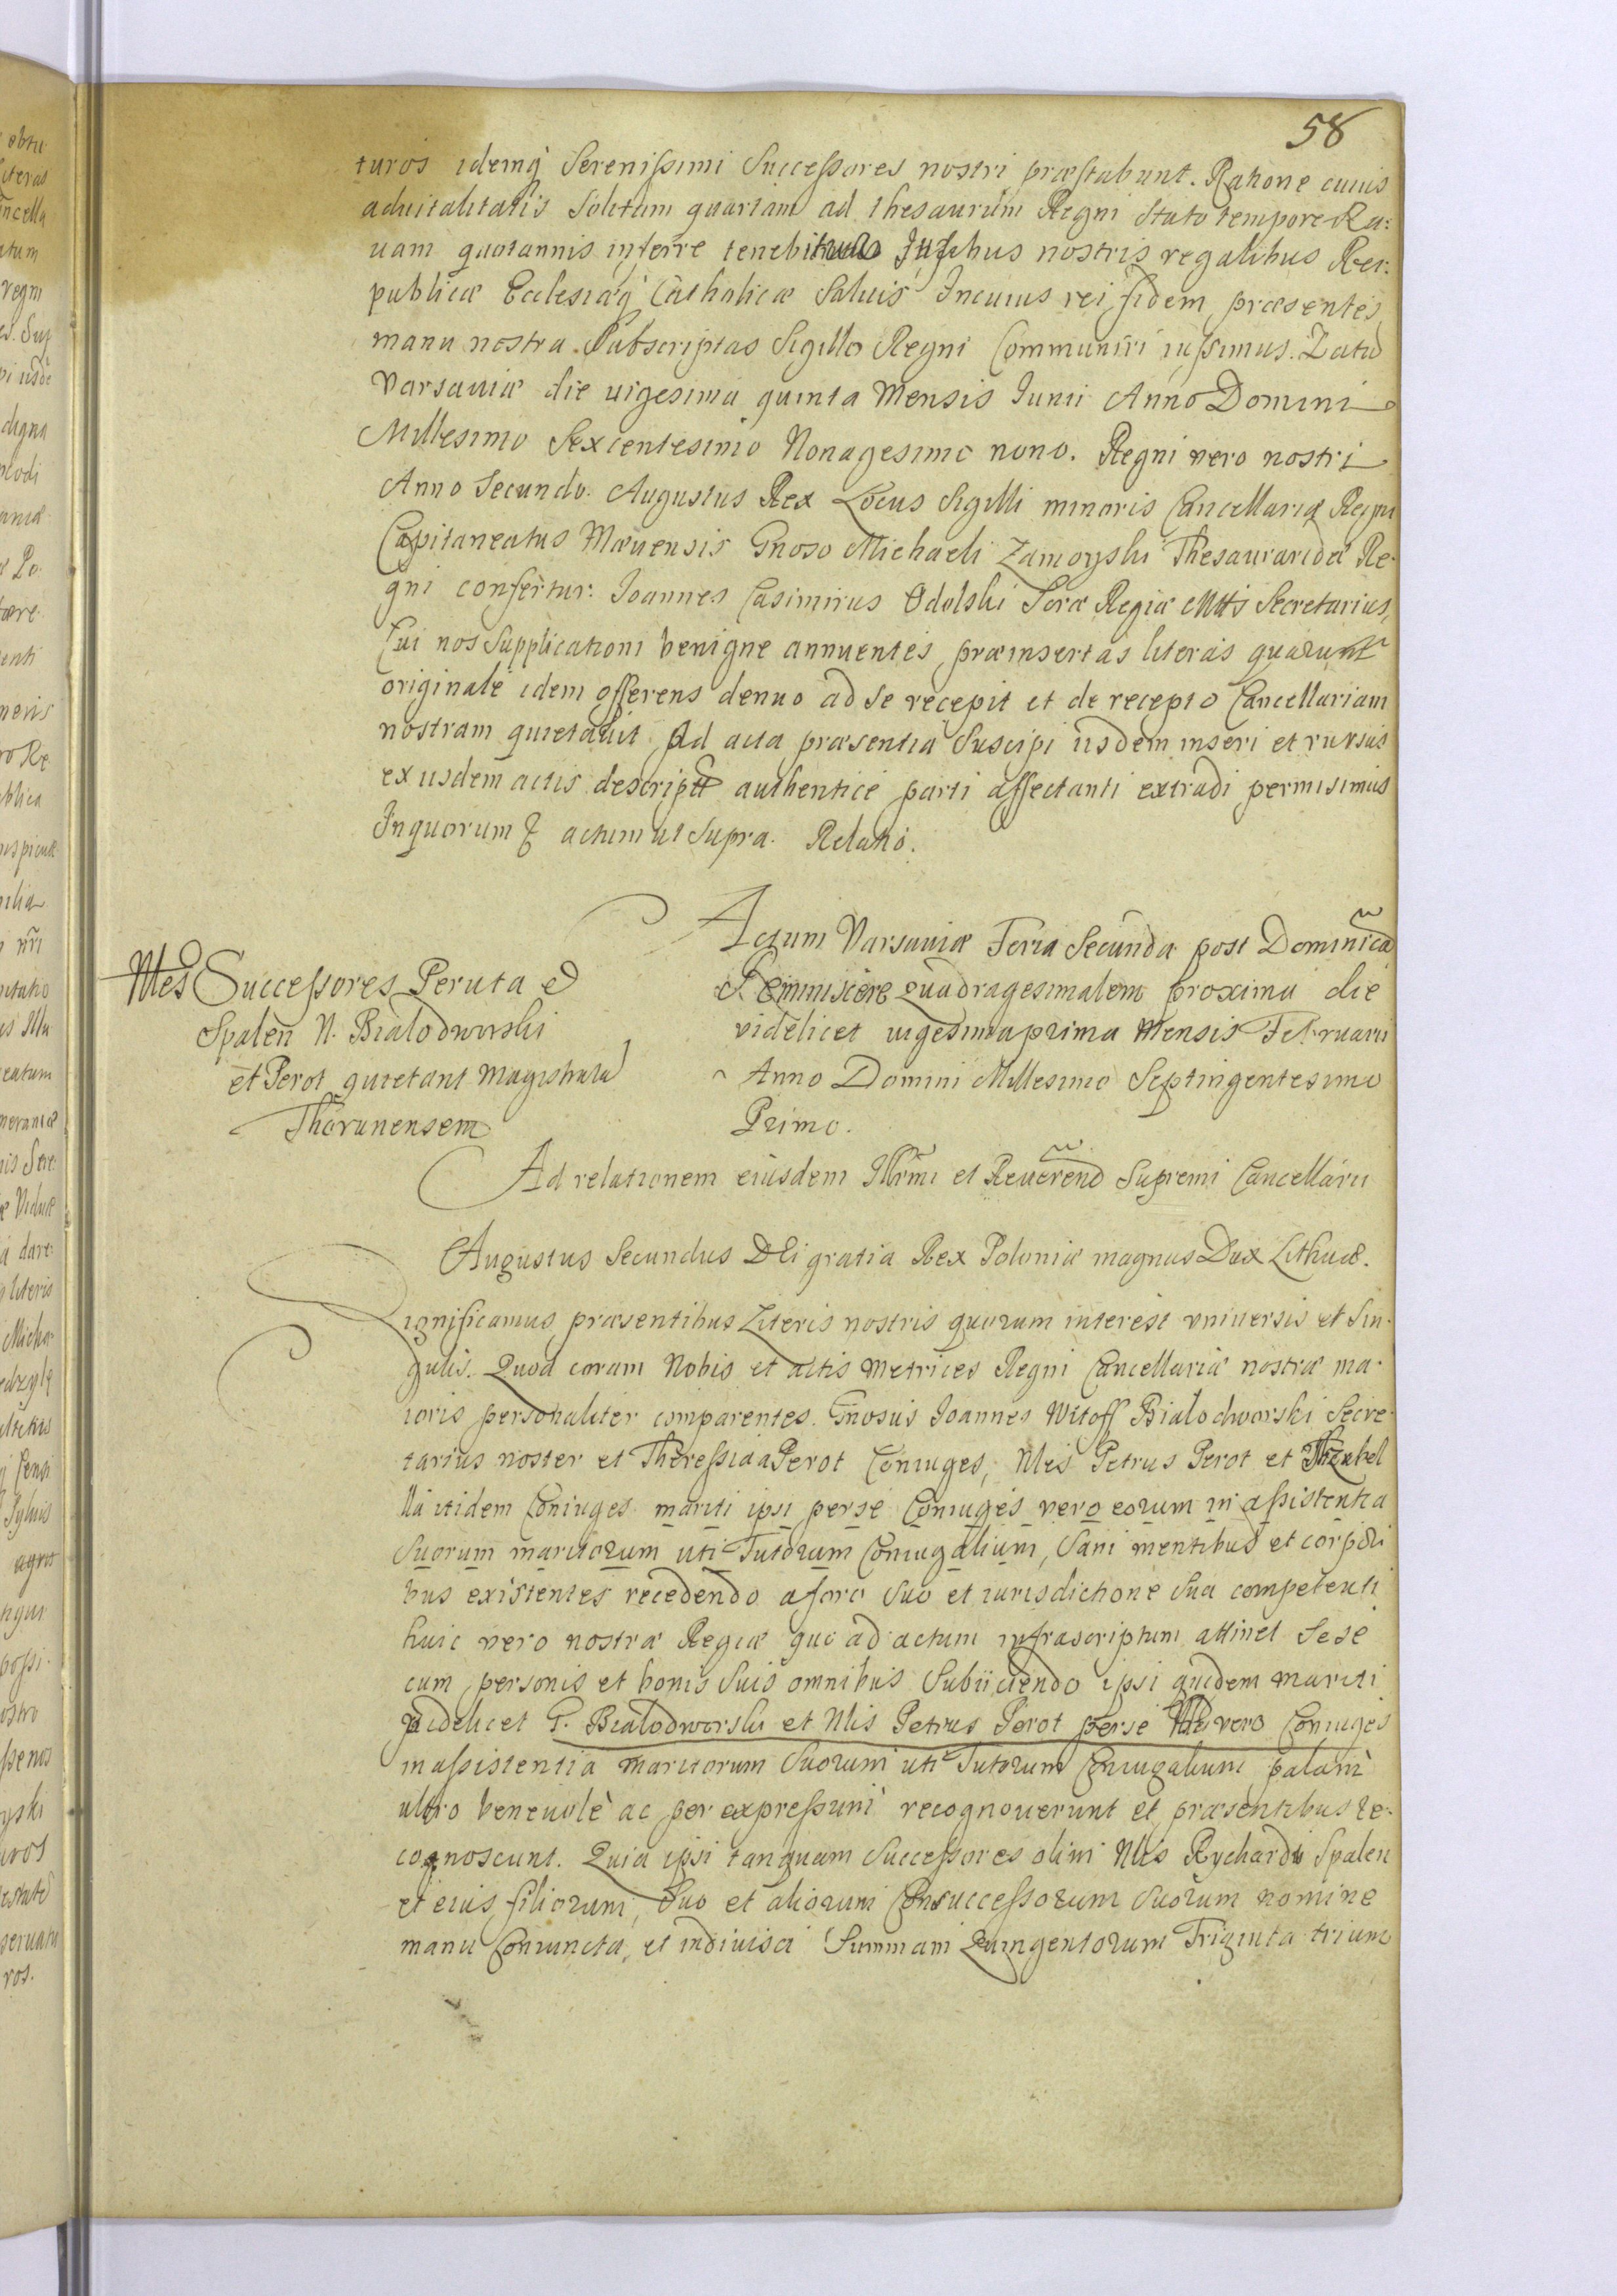 58
turos idemq́ Serenissimi Successores nostri præstabunt. Ratione cuius
aduitalitatis Solitam quartam ad thesaurum Regni Stato tempore Ra:
uam quotannis inferre tenebitur Juribus nostris regalibus Rei:
publicæ Ecclesiæq́ Catholicæ Saluis Incuius rei fidem præsentes
manu nostra Subscriptas Sigillo Regni Communiri iussimus. Datū
Varsauiæ die uigesima quinta Mensis Junii Anno Domini
Millesimo Sexcentesimo Nonagesimo nono. Regni vero nostri
Anno Secundo. Augustus Rex Locus Sigilli minoris Cancellariæ Regni
Capitaneatus Mævensis Gnoso Michaeli Zamoyski Thesauraridæ Re-
gni confertur. Joannes Casimirus Odolski Sacræ Regiæ Mttis Secretarius,
Cui nos Supplicationi benigne annuentes præinsertas literas quarum
originale idem offerens denuo ad se recepit et de recepto Cancellariam
nostram quietauit Ad acta præsentia Suscipi iisdem inseri et rursus
ex iisdem actis descriptas authentice parti affectanti extradi permisimus
Inquorum actum ut Supra. Relatio.
Actum Varsauiæ Feria Secunda post Dominicā
Reminiscere Quadragesimalem proxima die
videlicet uigesima prima Mensis Februarii
Anno Domini Millesimo Septingentesimo
Primo.
Nles Successores Peruta et
Spalen N. Bialodworski
et Perot quietant Magistratū
Thorunensem
Ad relationem eiusdem Illrmi et Reuerend Supremi Cancellarii
Augustus Secundus DEi gratia Rex Poloniæ magnus Dux Lithuæ.
Significamus præsentibus Literis nostris quorum interest vniuersis et Sin-
gulis. Quod coram Nobis et actis Metrices Regni Cancellariæ nostræ ma-
ioris personaliter comparentes. Gnosus Joannes Witoff Bialodworski Secre-
tarius noster et Theressia a Perot Coniuges, Nlis Petrus Perot et Izabel
la itidem Coniuges mariti ipsi per se Coniuges vero eorum in assistentia
Suorum maritorum uti Tutorum Coniugalium, Sani mentibus et corpori
bus existentes recedendo a foro suo et iurisdictione sua competenti
huic vero nostræ Regiæ quo ad actum infrascriptum attinet Sese
cum personis et bonis Suis omnibus Subiiciendo ipsi quidem mariti
videlicet G. Bialodworski et Nlis Petrus Perot per se Illæ vero Coniuges
in assistentia maritorum Suorum uti Tutorum Coniugalium palam
ultro beneuolè ac per expressum recognouerunt et præsentibus re-
cognoscunt. Quia ipsi tanquam Successores olim Nlis Rychardi Spalen
et eius filiorum, Suo et aliorum Consuccessorum Suorum nomine
manu Coniuncta, et indiuisa Summam Quingentorum Triginta trium